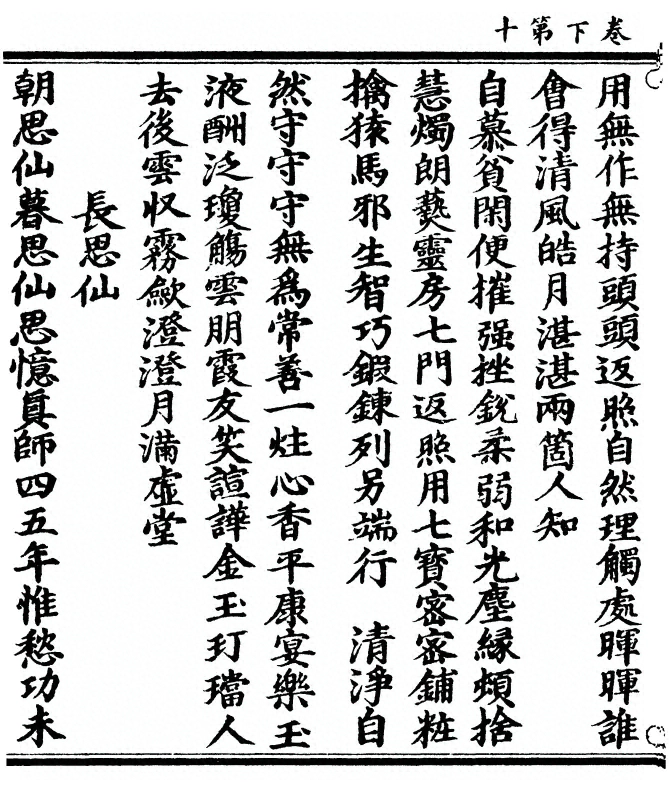 卷下第十
用無作無持頭頭返照自然理觸處暉暉誰
會得清風皓月湛湛兩箇人知
自慕貧閑便摧强挫銳柔弱和光塵緣頻捨
慧燭朗爇靈房七門返照用七寳密密鋪粧
擒猿馬邪生智巧鍛鍊列另端行　清淨自
然守守守無爲常善一炷心香平康宴樂玉
液酬泛瓊觴雲朋霞友笑諠譁金玉玎璫人
去後雲収霧歛澄澄月滿虛堂
長思仙
朝思仙暮思仙思憶真師四五年惟愁功未